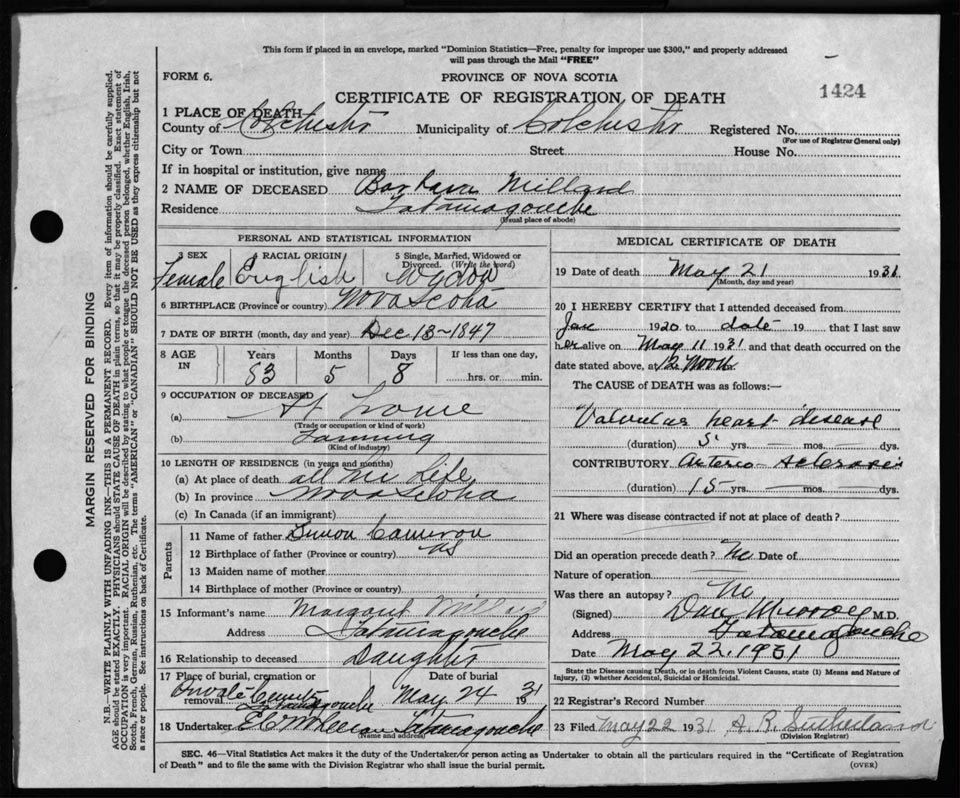 This form if placed in an envelope, marked "Dominion Statistics—Free, penalty for improper use $300," and properly addressed
will pass through the Mail "FREE"
FORM 6.
PROVINCE OF NOVA SCOTIA
CERTIFICATE OF REGISTRATION OF DEATH
1424
1 PLACE OF DEATH—
County of Colchester Municipality of Colchester Registered No.
(For use of Registrar General only)
City or Town Street House No.
If in hospital or institution, give name
2 NAME OF DECEASED Barbara Millard
Residence Tatamagouche
(Usual place of abode)
PERSONAL AND STATISTICAL INFORMATION
3 SEX 4 RACIAL ORIGIN 5 Single, Married, Widowed or
Divorced. (Write the word)
Female English Widow
6 BIRTHPLACE (Province or country) Nova Scotia
7 DATE OF BIRTH (month, day and year) Dec 13-1847
8 AGE IN Years Months Days If less than one day,
83 5 8 hrs. or min.
9 OCCUPATION OF DECEASED
(a) At home
(Trade or occupation or kind of work)
(b) Farming
(Kind of industry)
10 LENGTH OF RESIDENCE (in years and months)
(a) At place of death all her life
(b) In province Nova Scotia
(c) In Canada (if an immigrant)
Parents
11 Name of father Simon Cameron
12 Birthplace of father (Province or country) NS
13 Maiden name of mother
14 Birthplace of mother (Province or country)
15 Informant's name Margaret Millard
Address Tatamagouche
16 Relationship to deceased Daughter
17 Place of burial, cremation or removal Date of burial
Private Tatamagouche May 24 1931
18 Undertaker Tatamagouche
(Name and address)
MEDICAL CERTIFICATE OF DEATH
19 Date of death May 21 1931
(Month, day and year)
20 I HEREBY CERTIFY that I attended deceased from
Jan 1920 to date 19 that I last saw
her alive on May 11 1931 and that death occurred on the
date stated above, at 12 Noon
The CAUSE of DEATH was as follows:—
Valvular heart disease
(duration) 5 yrs. mos. dys.
CONTRIBUTORY Arterio-
(duration) 15 yrs. mos. dys.
21 Where was disease contracted if not at place of death?
Did an operation precede death? No Date of
Nature of operation
Was there an autopsy? No
(Signed) Dan Murray M.D.
Address Tatamagouche
Date May 22 1931
State the Disease causing Death, or in death from Violent Causes, state (1) Means and Nature of
Injury, (2) whether Accidental, Suicidal or Homicidal.
22 Registrar's Record Number
23 Filed May 22 1931 A. R. Sutherland
(Division Registrar)
SEC. 46—Vital Statistics Act makes it the duty of the Undertaker or person acting as Undertaker to obtain all the particulars required in the "Certificate of Registration
of Death" and to file the same with the Division Registrar who shall issue the burial permit.
(OVER)
MARGIN RESERVED FOR BINDING
N.B.—WRITE PLAINLY WITH UNFADING INK—THIS IS A PERMANENT RECORD. Every item of information should be carefully supplied.
AGE should be stated EXACTLY. PHYSICIANS should STATE CAUSE OF DEATH in plain terms, so that it may be properly classified. Exact statement of
OCCUPATION is very important. RACIAL ORIGIN will be described by stating to what people or tongue the deceased person belonged, whether English, Irish,
Scotch, French, German, Russian, Ruthenian, etc. The terms "AMERICAN" or "CANADIAN" SHOULD NOT BE USED as they express citizenship but not
a race or people. See instructions on back of Certificate.